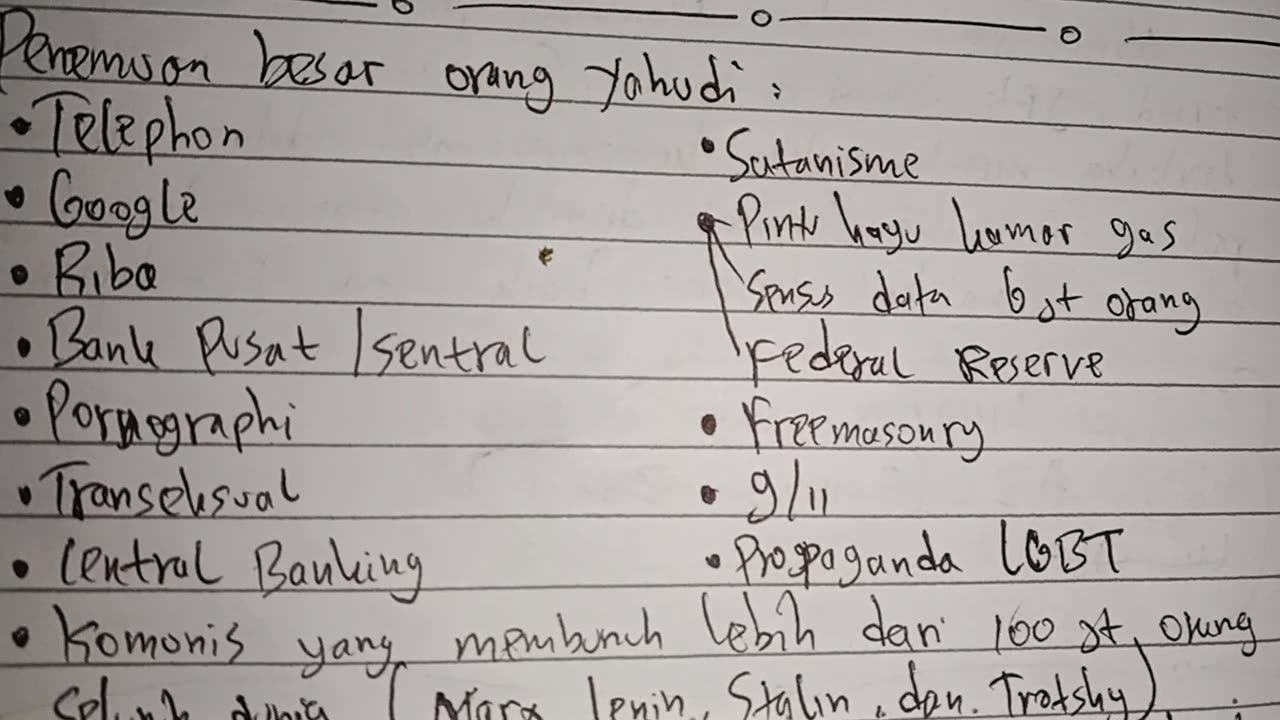 Penemuan besar orang Yahudi :
• Telephon
• Google
• Riba
• Bank Pusat / sentral
• Pornographi
• Transeksual
• Central Banking
• Satanisme
• Pintu kayu kamar gas
Sensus data 6 jt orang
Federal Reserve
• Freemasonry
• 9/11
• Propaganda LGBT
• Komonis yang membunuh lebih dari 100 jt orang
Seluruh dunia ( Marx Lenin, Stalin, dan Trotsky )